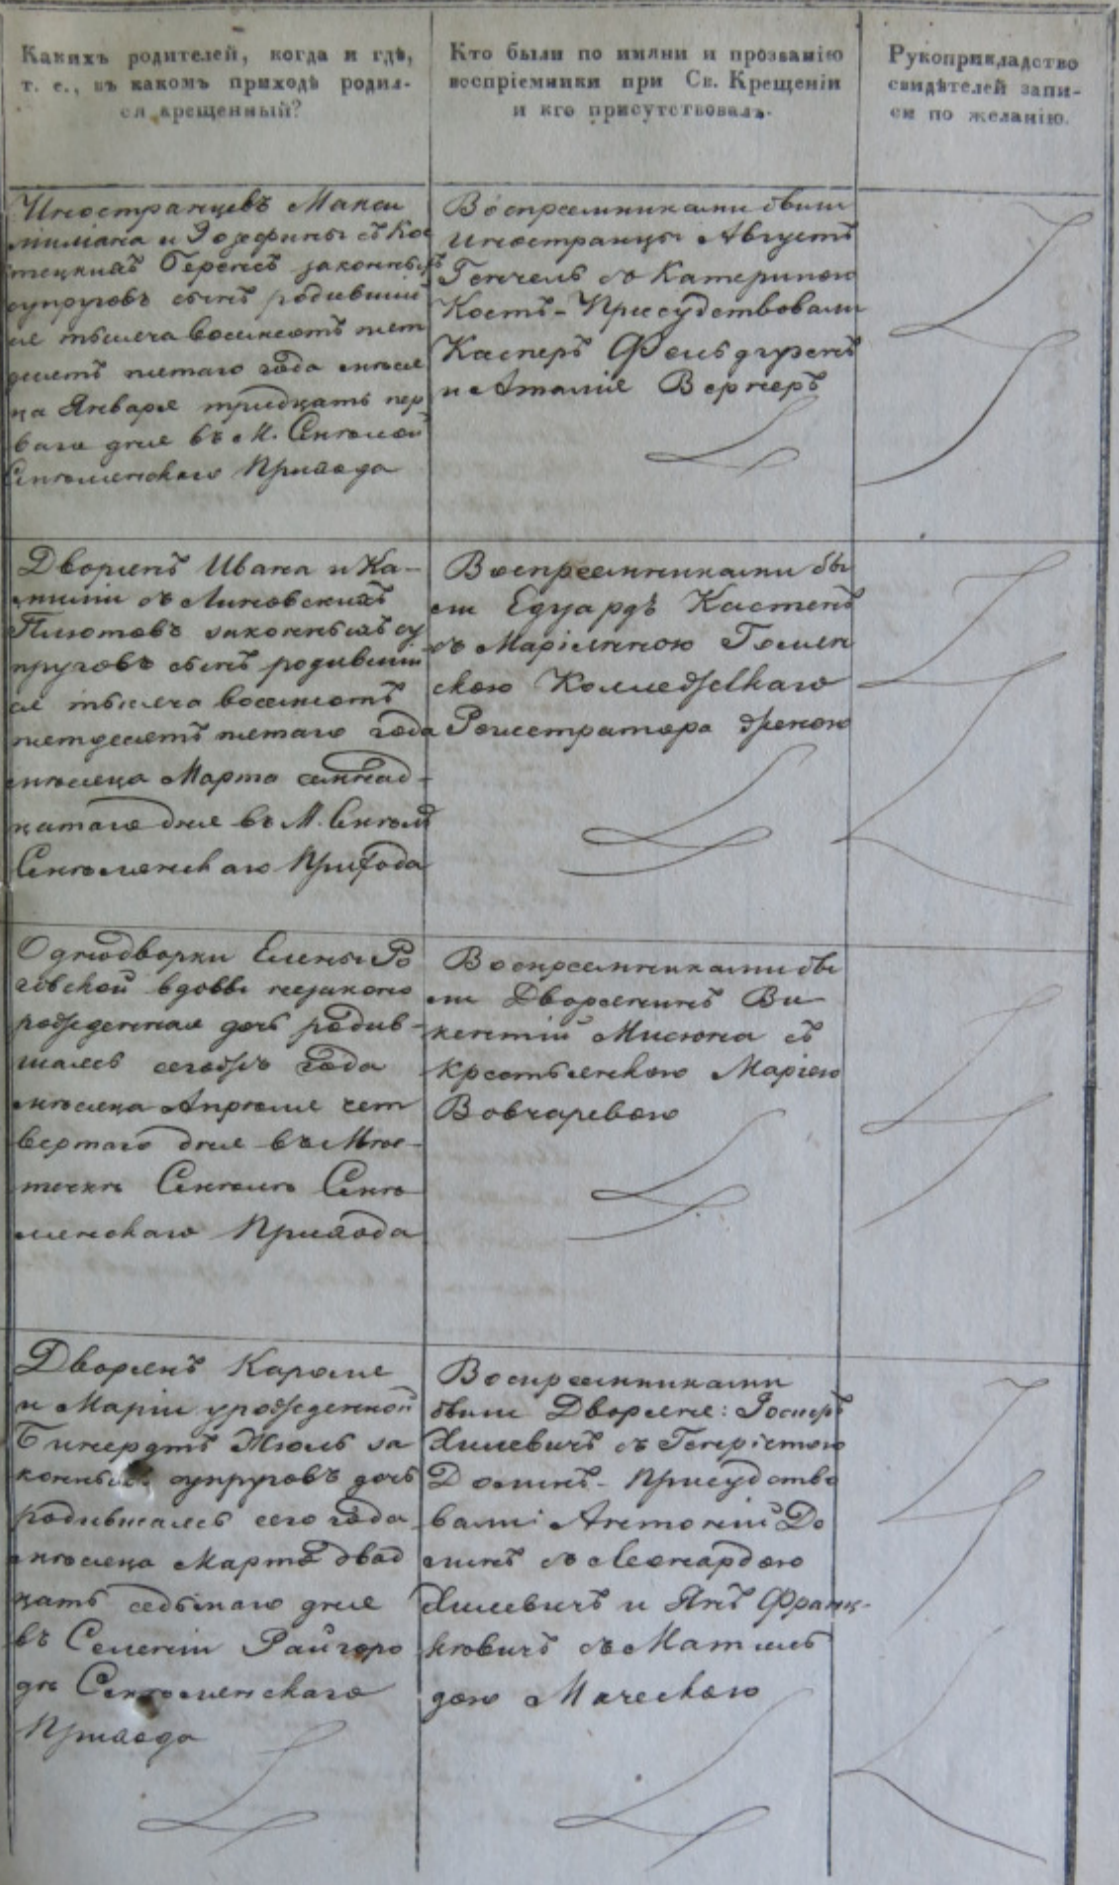 Какихъ родителей, когда и гдѣ,
т. е., въ какомъ приходѣ родил-
ся крещенный?
Кто были по имяни и прозванію
воспріемники при Св. Крещеніи
и кто присутствовалъ.
Рукоприкладство
свидѣтелей запи-
си по желанію.
Иностранцевъ Макси
миліана и Іозефины съ
законныхъ
супруговъ сынъ родивший
ся тысяча восемсотъ пят
десятъ пятаго года мѣся
ца Января тридцать пер
ваго дня въ М. Смѣлой
Смѣлянскаго Прихода
Воспреемниками были
Иностранцы Августъ
съ Катериною
Костъ - Присудствовали
Касперъ
и Аталія Вернеръ
Дворянъ Ивана и Ка-
миліи съ Линовскихъ
законныхъ су
пруговъ сынъ родивший
ся тысяча восемсотъ
пятдесятъ пятаго года
мѣсяца Марта семнад-
цатаго дня въ М. Смѣлой
Смѣлянскаго Прихода
Воспреемниками бы
ли Едуардъ Кастенъ
съ Маріянною
скою Колледжскаго
Регистратора женою
Однодворки Елены Ро
говской вдовы незаконо
рожденная дочь родив-
шаясь сегожъ года
мѣсяца Апрѣля чет
вертаго дня въ Мѣс-
течкѣ Смѣлой Смѣ
лянскаго Прихода
Воспреемниками бы
ли Дворянинъ Ви
кентій Мисюна съ
Крестьянкою Маріею
Вовчаревою
Дворянъ Кароля
и Маріи урожденной
за
конныхъ супруговъ дочь
родившаясь сего года
мѣсяца Марта двад
цать седьмаго дня
въ Селеніи Райгоро
дѣ Смѣлянскаго
Прихода
Воспреемниками
были Дворяне:
Хилевичъ съ
Присудство
вали: Антоній До
минъ съ Леонардою
Хилевичъ и Янъ Франц-
кѣвичъ съ Матиль
дою